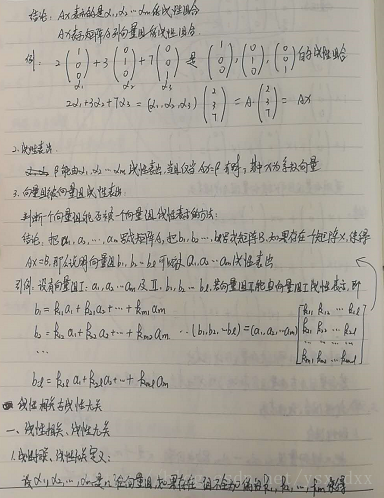 结论: Ax表示的是α₁,α₂…αm的线性组合
Ax表示矩阵A列向量组的线性组合.
例: 2(1 1 0 0)+3(0 1 1 0)+7(0 0 0 1)是(1 1 0 0),(0 1 1 0),(0 0 0 1)的线性组合
α₁ α₂ α₃
2α₁+3α₂+7α₃=(α₁,α₂,α₃)(2 3 7)=A·(2 3 7)=AX
2.线性表出.
β能由α₁,α₂…αm线性表出,当且仅当AX=β有解,其中X为系数向量
3.向量组被向量组线性表出
判断一个向量组能否被一个向量组线性表示的方法:
结论:把a₁,a₂,…,am写成矩阵A,把b₁,b₂…bℓ写成矩阵B.如果存在一个矩阵X,使得
AX=B,那么认为向量b₁,b₂…bℓ可以被a₁,a₂…am线性表出
引例.设有向量组I:a₁,a₂…am及II.b₁,b₂…bℓ.若向量组II能由向量组I线性表示,即
b₁=k₁₁a₁+k₂₁a₂+…+km₁am
b₂=k₁₂a₁+k₂₂a₂+…+km₂am ∴(b₁,b₂,…bℓ)=(a₁,a₂,…am)
[k₁₁ k₁₂ … k₁ℓ
k₂₁ k₂₂ … k₂ℓ
… … … …
km₁ km₂ … kmℓ]
…
bℓ=k₁ℓa₁+k₂ℓa₂+…+kmℓam
线性相关与线性无关
一、线性相关、线性无关
1.线性相关、线性无关定义:
设α₁,α₂,…,αm是n维向量组,如果存在一组不全为0的k₁,k₂,…,km使得